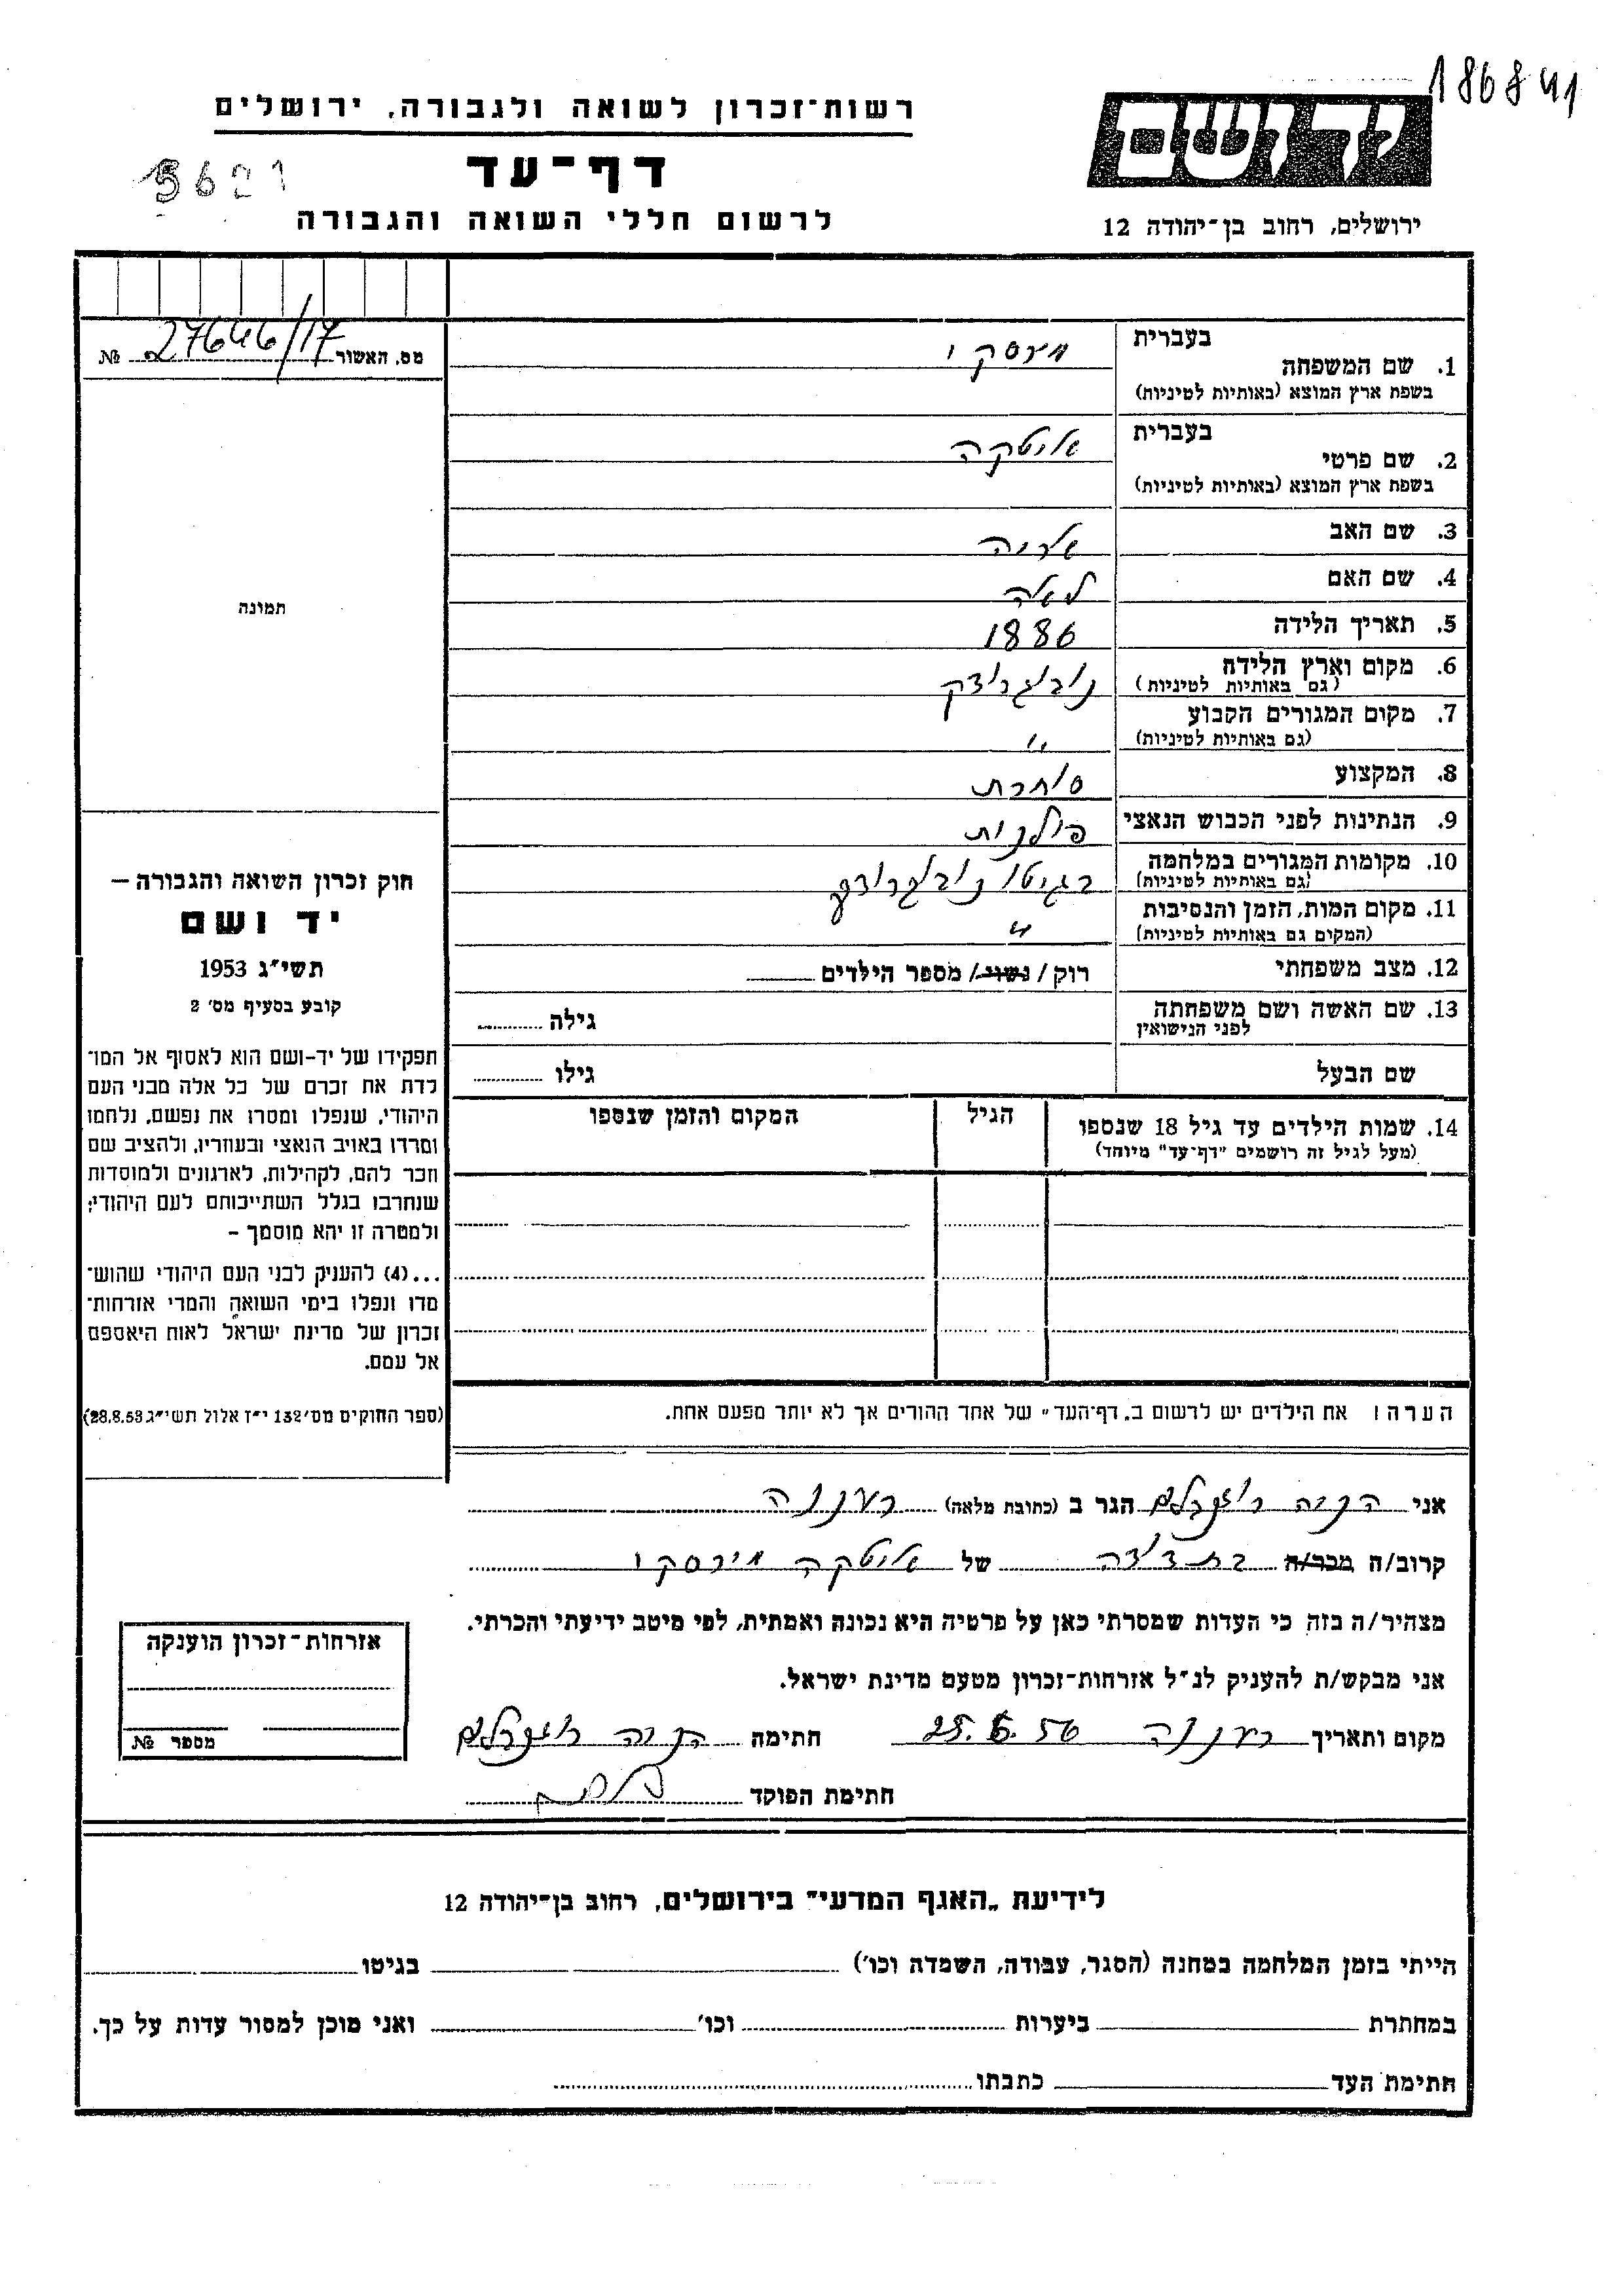 186841
יד ושם
רשות־זכרון לשואה ולגבורה, ירושלים
דף־עד
לרשום חללי השואה והגבורה
ירושלים, רחוב בן־יהודה 12
מס. האשור 27646/17 №
בעברית
1. שם המשפחה מירסקי
בשפת ארץ המוצא (באותיות לטיניות)
בעברית
2. שם פרטי איטקה
בשפת ארץ המוצא (באותיות לטיניות)
3. שם האב אריה
4. שם האם לאה
5. תאריך הלידה 1886
6. מקום וארץ הלידה נובוגרודק
(גם באותיות לטיניות)
7. מקום המגורים הקבוע "
(גם באותיות לטיניות)
8. המקצוע סוחרת
9. הנתינות לפני הכבוש הנאצי פולנית
10. מקומות המגורים במלחמה בגיטו נובוגרודק
(גם באותיות לטיניות)
11. מקום המות, הזמן והנסיבות "
(המקום גם באותיות לטיניות)
12. מצב משפחתי רוק / נשוי / מספר הילדים
13. שם האשה ושם משפחתה גילה
לפני הנישואין
שם הבעל גילו
14. שמות הילדים עד גיל 18 שנספו הגיל המקום והזמן שנספו
(מעל לגיל זה רושמים "דף־עד" מיוחד)
הערה ו את הילדים יש לרשום ב„דף־העד" של אחד ההורים אך לא יותר מפעם אחת.
תמונה
חוק זכרון השואה והגבורה –
יד ושם
תשי"ג 1953
קובע בסעיף מס' 2
תפקידו של יד-ושם הוא לאסוף אל המו־
לדת את זכרם של כל אלה מבני העם
היהודי, שנפלו ומסרו את נפשם, נלחמו
ומרדו באויב הנאצי ובעוזריו, ולהציב שם
וזכר להם, לקהילות, לארגונים ולמוסדות
שנחרבו בגלל השתייכותם לעם היהודי;
ולמטרה זו יהא מוסמך –
...(4) להעניק לבני העם היהודי שהוש־
מדו ונפלו בימי השואה והמרי אזרחות־
זכרון של מדינת ישראל לאות היאספם
אל עמם.
(ספר החוקים מס' 132 י"ז אלול תשי"ג 28.8.53)
אני הניה הגר ב (כתובת מלאה) רעננה
קרוב/ה מכר/ה בת דודה של איטקה מירסקי
מצהיר/ה בזה כי העדות שמסרתי כאן על פרטיה היא נכונה ואמתית, לפי מיטב ידיעתי והכרתי.
אני מבקש/ת להעניק לנ"ל אזרחות־זכרון מטעם מדינת ישראל.
מקום ותאריך רעננה 25.6.56 חתימה הניה
חתימת הפוקד
אזרחות־זכרון הוענקה
מספר №
לידיעת „האגף המדעי" בירושלים, רחוב בן־יהודה 12
הייתי בזמן המלחמה במחנה (הסגר, עבודה, השמדה וכו') בגיטו
במחתרת ביערות וכו' ואני מוכן למסור עדות על כך.
חתימת העד כתבתו